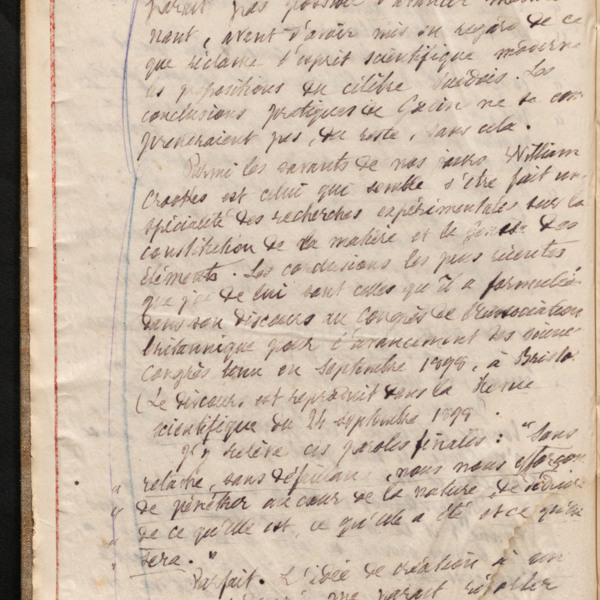 parait pas possible d'avancer mainte
nant, avant d'avoir mis en regard de ce
que réclame l'esprit scientifique moderne
les propositions du célèbre Suédois. Les
conclusions pratiques de ne se com
prendraient pas, du reste, sans cela.
Parmi les savants de nos jours William
Crookes est celui qui semble s'être fait une
spécialité des recherches expérimentales sur la
constitution de la matière et la genèse des
éléments. Les conclusions les plus récentes
que j'ai de lui sont celles qu'il a formulées
dans son discours au Congrès de l'association
britannique pour l'avancement des sciences
Congrès tenu en septembre 1898, à Bristol
(Le discours est reproduit dans la Revue
scientifique du 24 septembre 1898.
J'y relève ces paroles finales : "Sans
" relâche, sans défaillance, nous nous efforçons
" de pénétrer au cœur de la nature, de
" de ce qu'elle est, ce qu'elle a été et ce qu'elle
" sera."
Parfait. L'idée de création à un
parait résulter